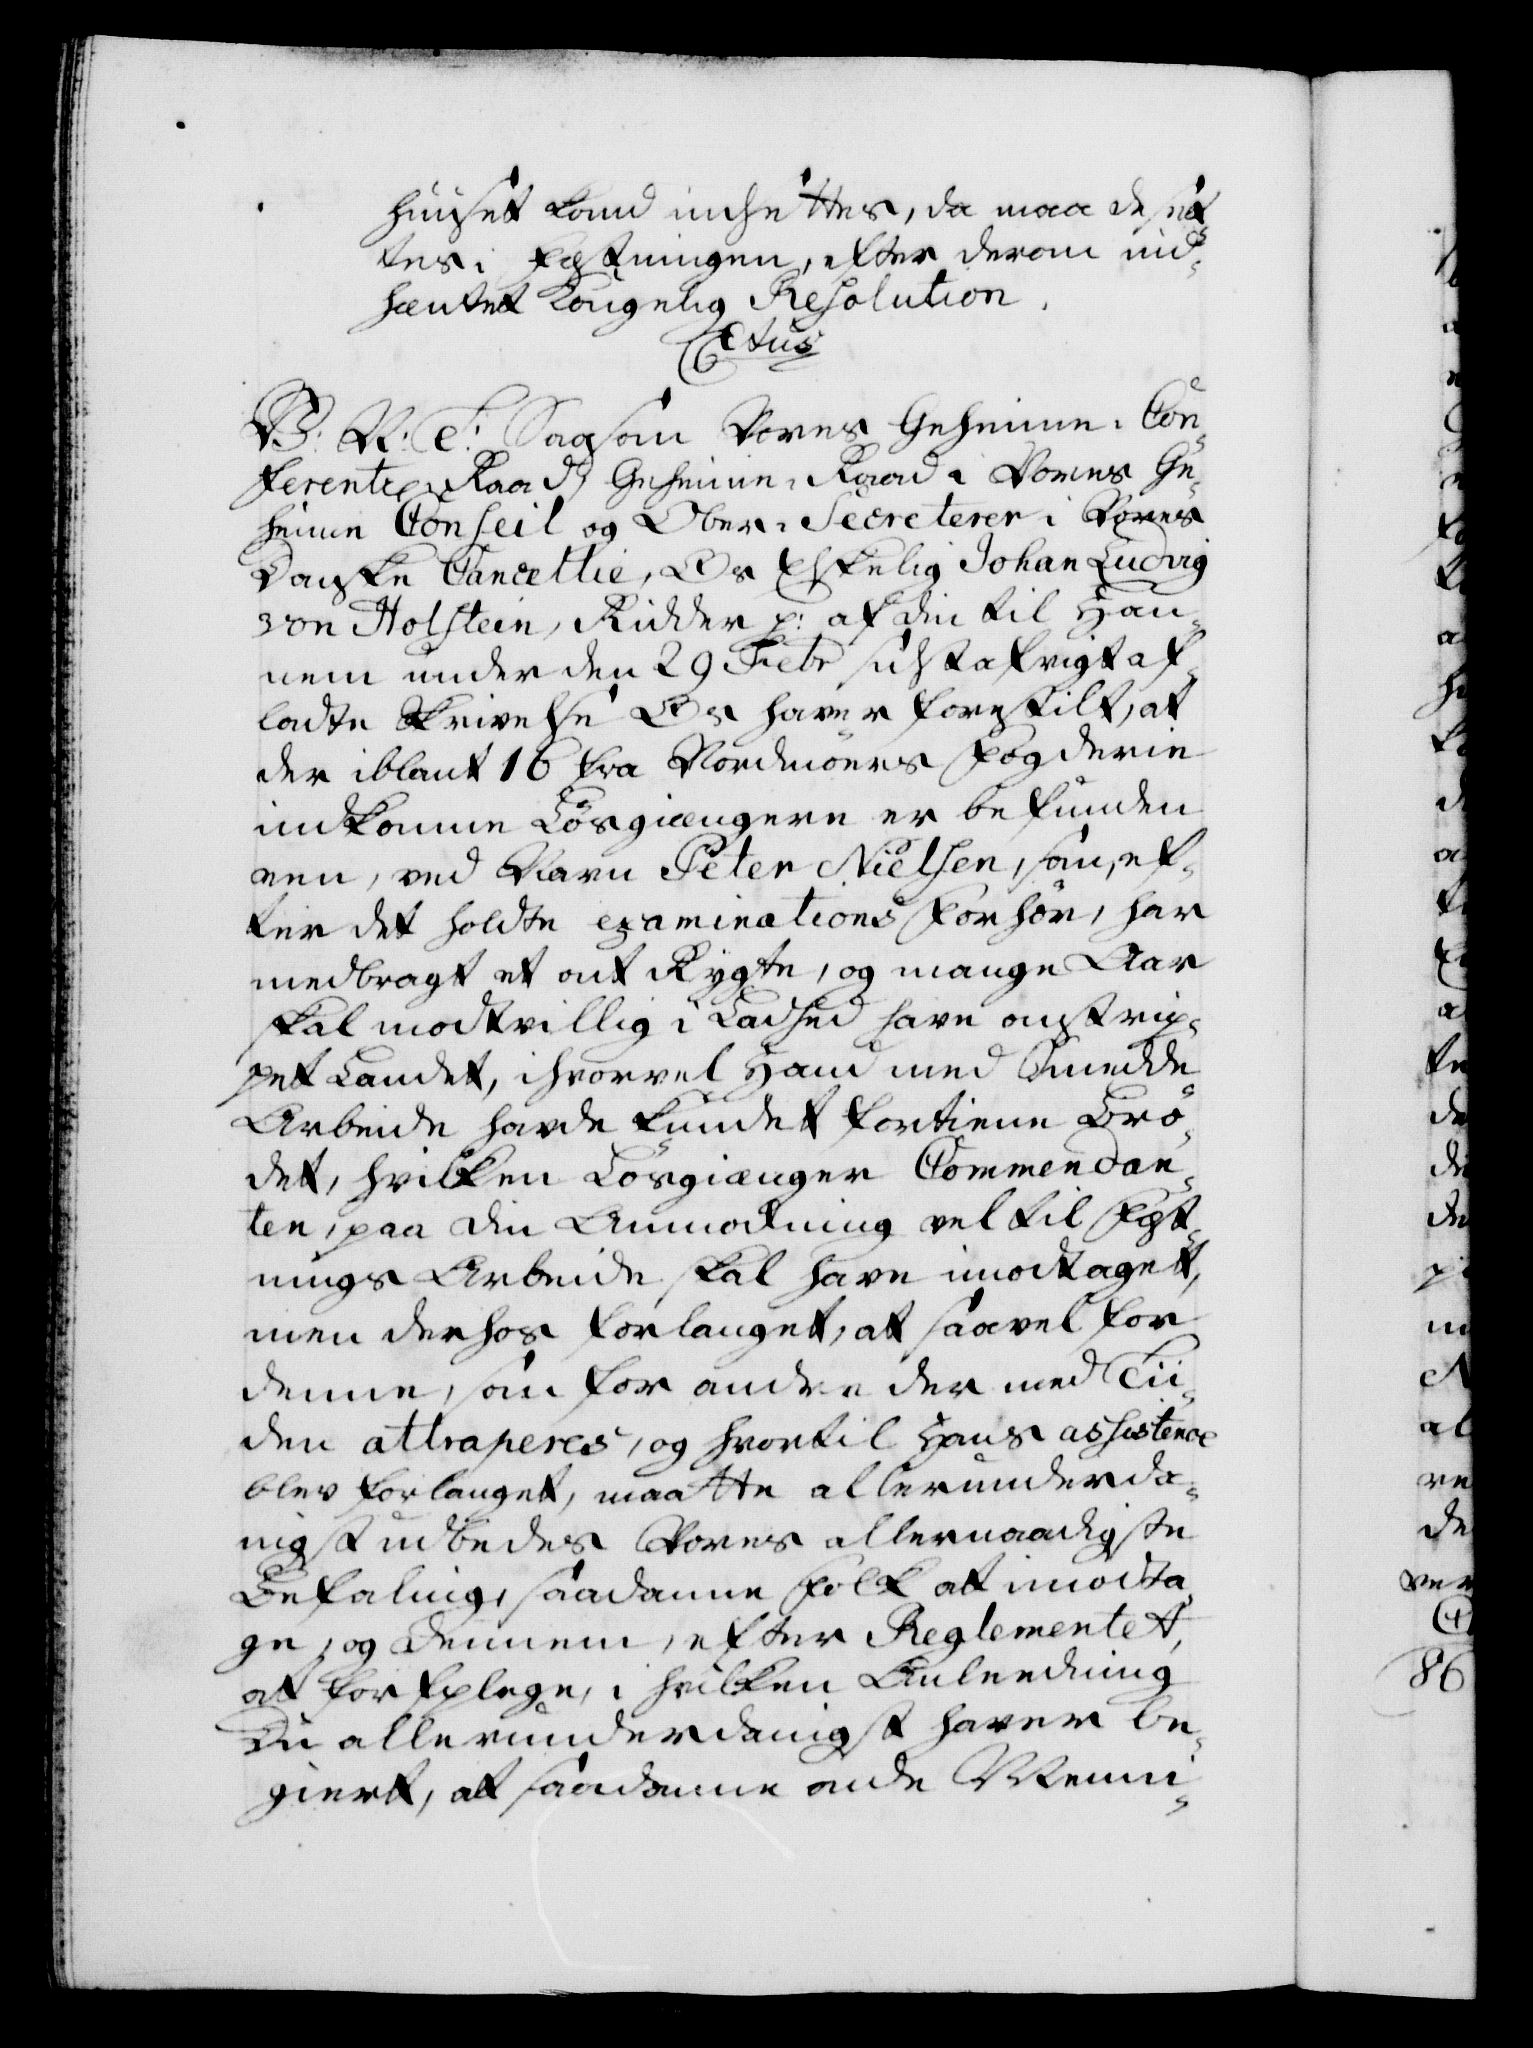 huuset kand indsættes, da maa de sæt
tes i Fæstningen, efter derom ind¬
hæntet Kongelig Resolution.
Ctus
V. V. T. Saasom Vores Geheime- Con¬
ferentz Raad, Geheime-Raad i Vores Ge¬
heime Conseil og Ober-Secreterer i Vores
Danske Cancellie, Os Elskelig Johan Ludvig
von Holstein, Ridder p: af din til Han¬
nem under den 29 Febr sidst afvigt af¬
ladte Skrivelse Os haver forestilt, at
der iblant 16 fra Nordmöers Fogderie
indkomne Lösgiængere er befunden
een, ved Navn Peter Nielsen, som, ef¬
ter det holdte examinations Forhör, har
medbragt et ont Rygte, og mange Aar
skal modtvillig i Ladhed have omstrip¬
pet Landet, ihvorvel Hand med Smedde
Arbeide havde kundet fortiene Brö¬
det, hvilken Lösgiænger Commendan¬
ten, paa din Anmodning vel til Fæst¬
nings Arbeide skal have imodtaget,
men derhos forlanget, at saavel for
denne, som for andre der med Tii¬
den attraperes, og hvortil Hans assistence
blev forlanget, maatte allerunderda¬
nigst udbedes Vores allernaadigste
Befaling, saadanne Folk at imodta
ge, og dennem, efter Reglementet,
at forpleye, i hvilken Anleedning
Du allerunderdanigst haver be¬
giert, at saadanne onde Menni¬